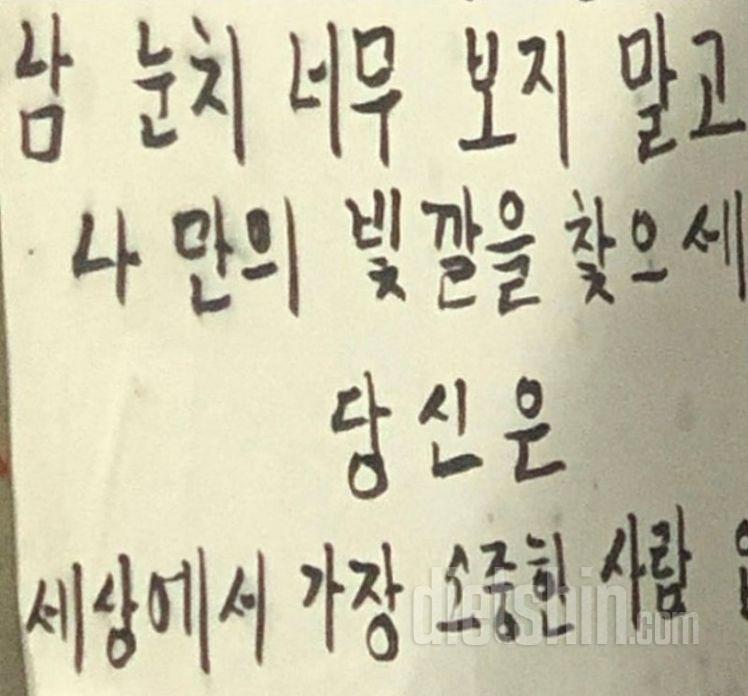 남 눈치 너무 보지 말고
나 만의 빛깔을 찾으세
당신은
세상에서 가장 소중한 사람
dietshin.com